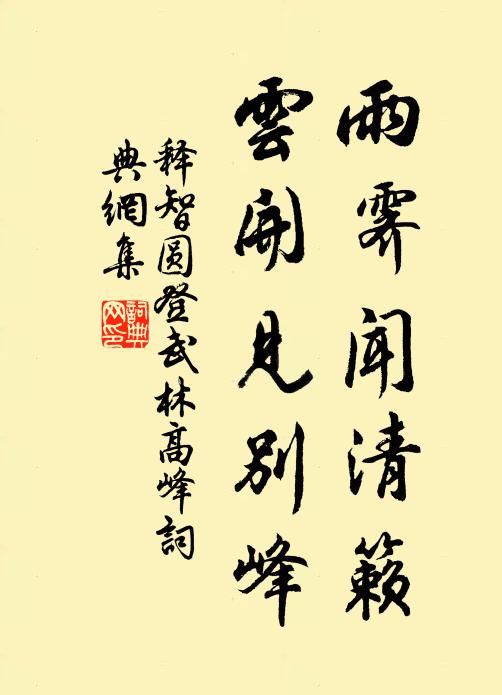 雨霁聞清籟
雲開見別峰
释智圆登武林高峰詞
典網集
詞典
网印